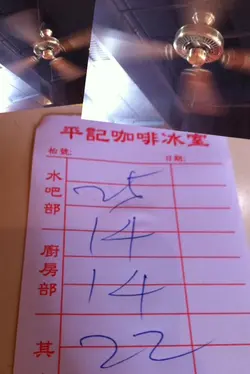 平記咖啡冰室
枱號: 日期:
水吧部 25
廚房部 14
14
其 22